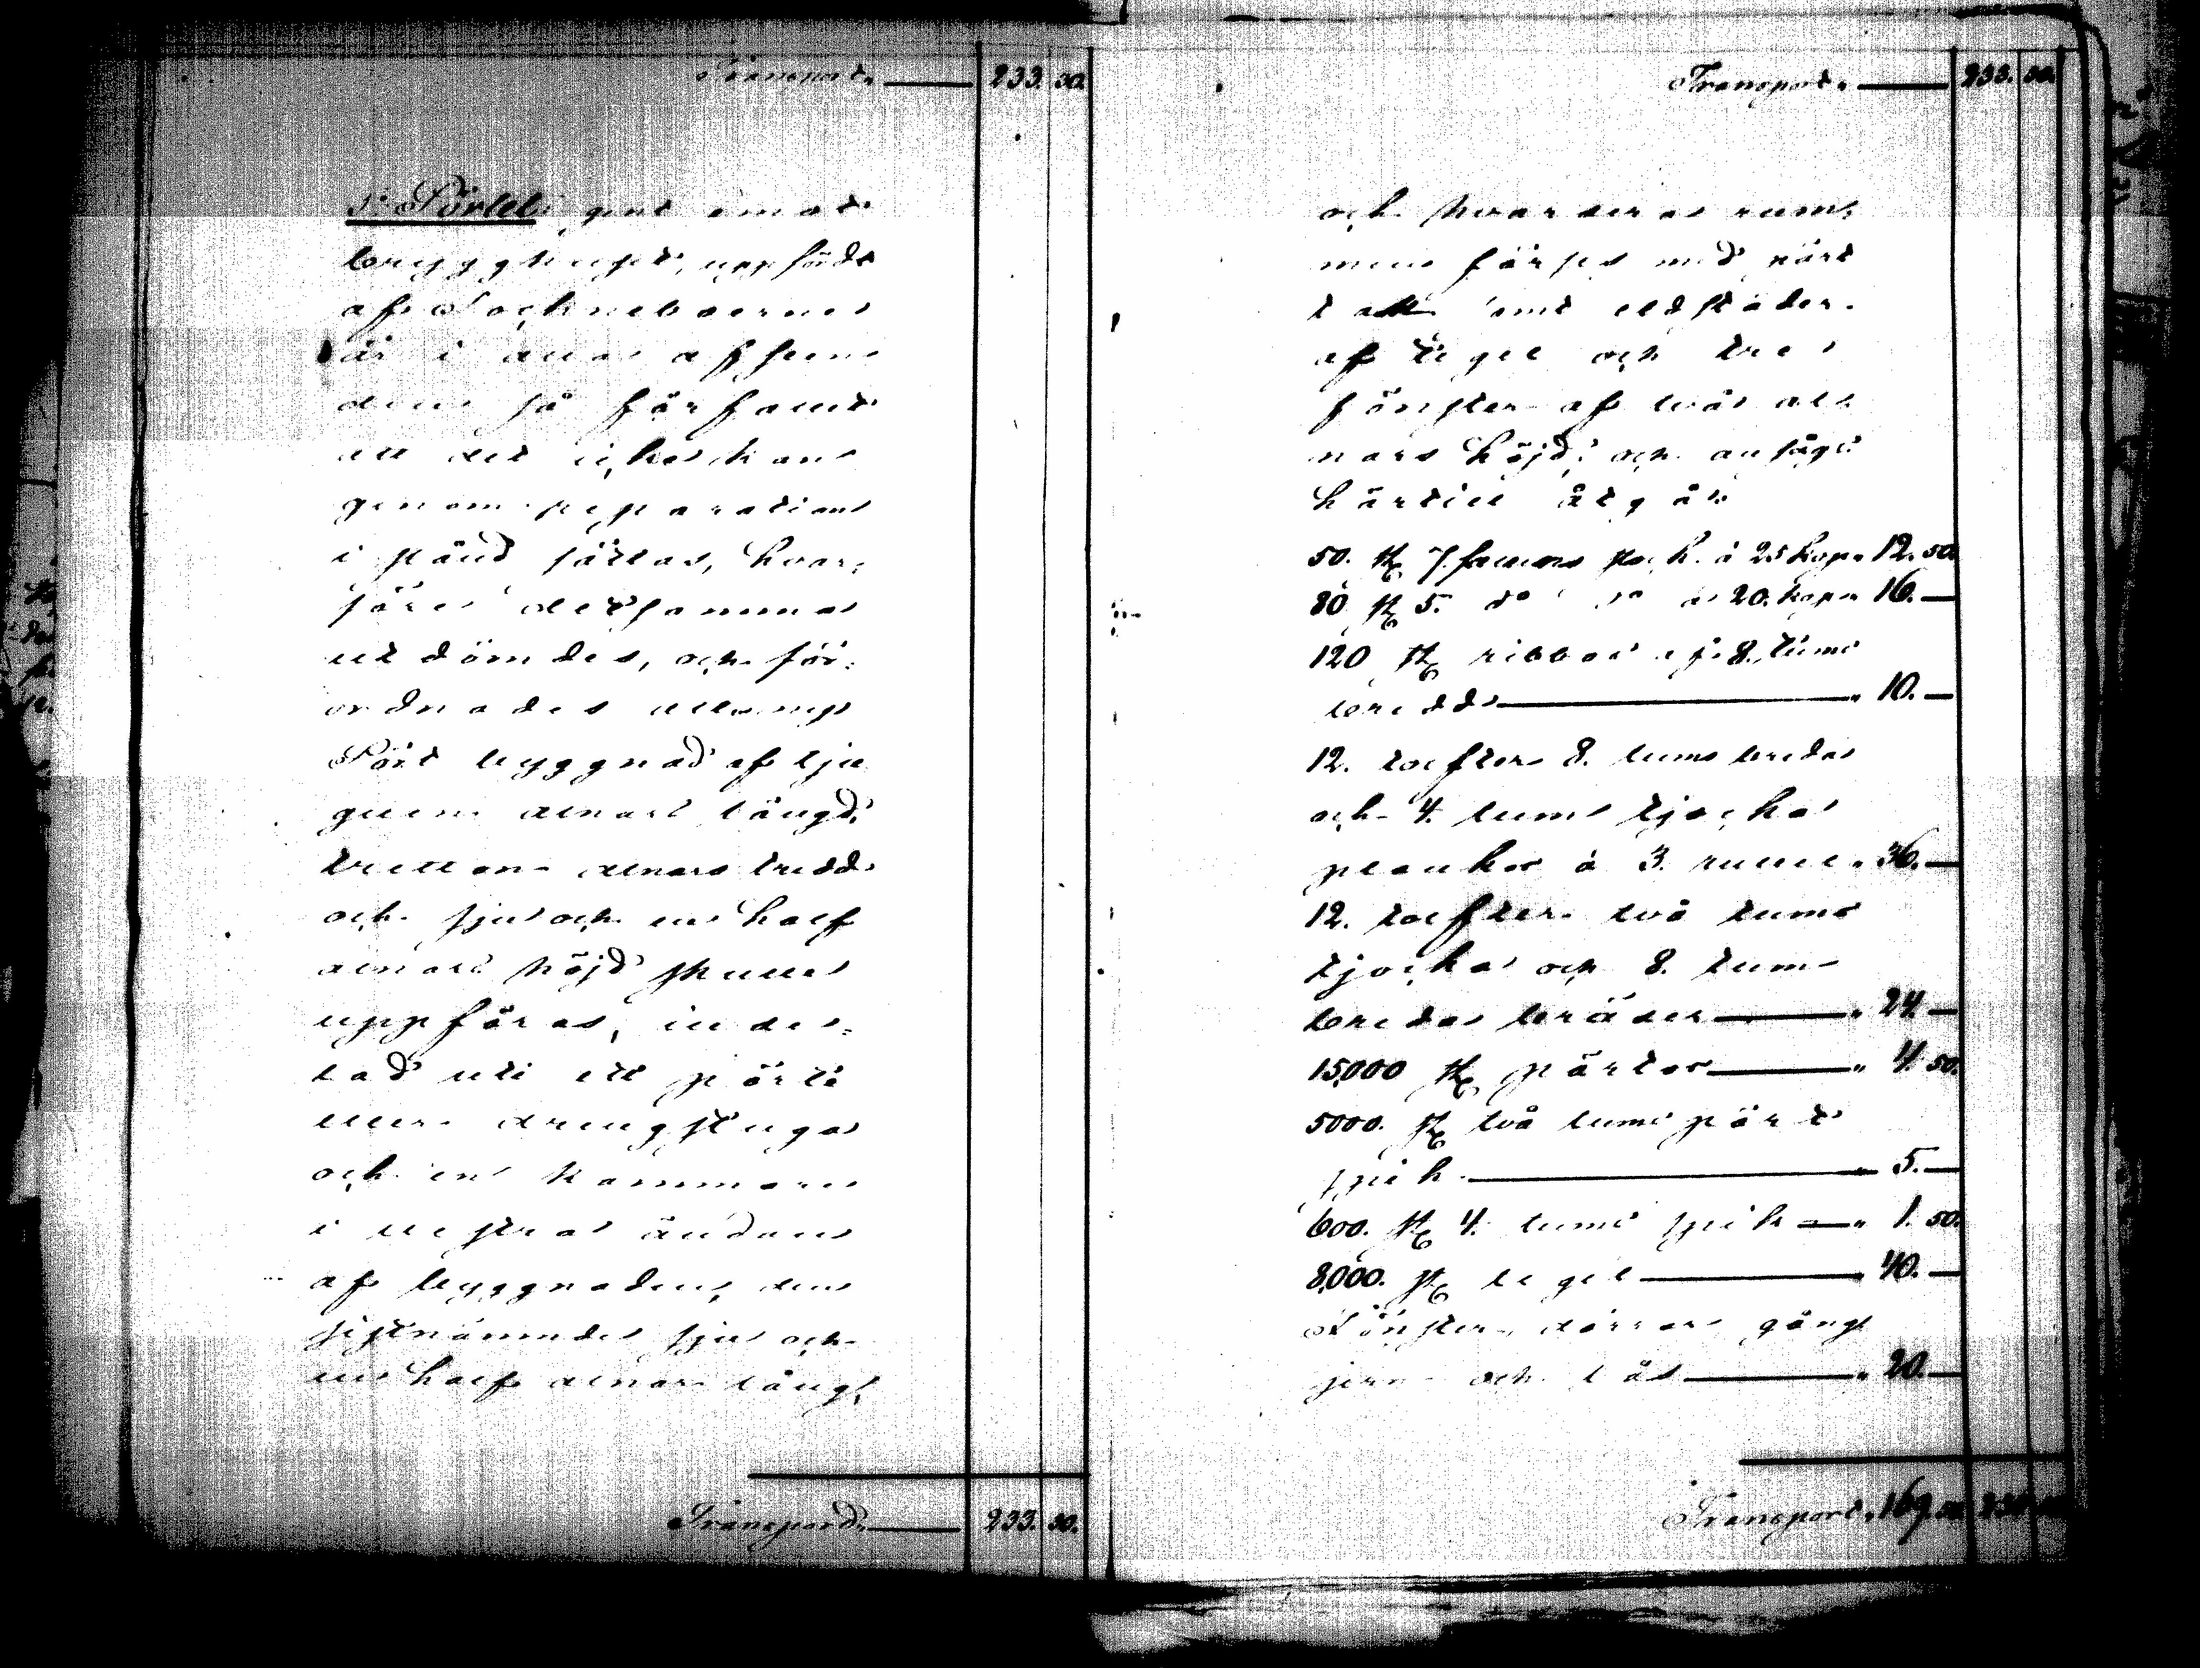 Transport „ 233. 50.
5. Pörtet, gent emot
brygghuset, uppfördt
af Sockneboerne
är i anse affseen
den så förfallit
att det icke kan
genom reparation
i stånd sättas, hvar-
före detsamma
utdömdes, och för-
ordnades att en ny
Pört byggnad af tju
guen alnars längd,
tretton alnars bredd
och sju och en half
alnars höjd skulle
uppföras, inde-
lad uti ett pörte
eller drengstuga
och en kammare
i vestra ändan
af byggnaden, den
sistnämnde sju och
en half alnar lång,
Transport „ 233. 50.
Transport „ 233. 50.
och hvarderas rum,
men förses med pört
tak samt eldstäder
af tegel och tre
fönster af två al-
nars höjd, och ansågs
härtill åtgå:
50. st 7. famns stock à 25 kop „ 12. 50
80 st 5. do do à 20. kop „ 16. —
120 st ribbor af 8. tums
bredd „ 10. —
12. tolfter 8. tums breda
och 4. tums tjocka
plankor à 3. rubel „ 36. —
12. tolfter två tums
tjocka och 8. tums
breda bräder „ 24 —
15,000 st pärtor „ 4. 50.
5000. st två tums pärt
spik „ 5. —
600. st 4. tums spik „ 1. 50.
8,000. st tegel „ 40. —
Fönster, dörrar gång
jern och lås „ 20. —
Transport „ 169. 50 233. 50